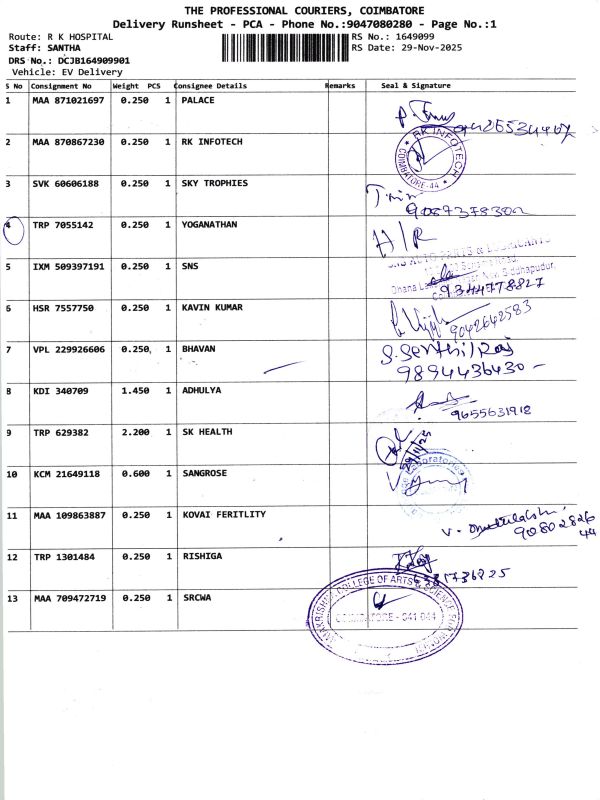 THE PROFESSIONAL COURIERS, COIMBATORE
Delivery Runsheet - PCA - Phone No.:9047080280 - Page No.:1
Route: R K HOSPITAL RS No.: 1649099
Staff: SANTHA RS Date: 29-Nov-2025
DRS No.: DCJB164909901
Vehicle: EV Delivery
S No Consignment No Weight PCS Consignee Details Remarks Seal & Signature
1 MAA 871021697 0.250 1 PALACE
2 MAA 870867230 0.250 1 RK INFOTECH
RK INFOTECH
COIMBATORE-44
3 SVK 60606188 0.250 1 SKY TROPHIES
4 TRP 7055142 0.250 1 YOGANATHAN H/R
5 IXM 509397191 0.250 1 SNS
Siddhapudur,
9344778827
6 HSR 7557750 0.250 1 KAVIN KUMAR
9042642583
7 VPL 229926606 0.250 1 BHAVAN S.Senthil Raj
9894436430
8 KDI 340709 1.450 1 ADHULYA
9655631912
9 TRP 629382 2.200 1 SK HEALTH
29/11/25
10 KCM 21649118 0.600 1 SANGROSE
11 MAA 109863887 0.250 1 KOVAI FERITLITY
9080282644
12 TRP 1301484 0.250 1 RISHIGA
13 MAA 709472719 0.250 1 SRCWA
COLLEGE OF ARTS & SCIENCE
COIMBATORE - 641 044